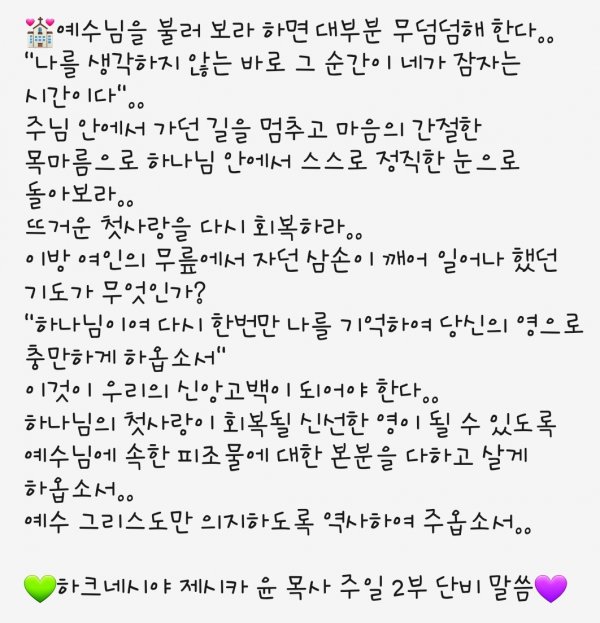 💒예수님을 불러 보라 하면 대부분 무덤덤해 한다..
"나를 생각하지 않는 바로 그 순간이 네가 잠자는
시간이다"..
주님 안에서 가던 길을 멈추고 마음의 간절한
목마름으로 하나님 안에서 스스로 정직한 눈으로
돌아보라..
뜨거운 첫사랑을 다시 회복하라..
이방 여인의 무릎에서 자던 삼손이 깨어 일어나 했던
기도가 무엇인가?
"하나님이여 다시 한번만 나를 기억하여 당신의 영으로
충만하게 하옵소서"
이것이 우리의 신앙고백이 되어야 한다..
하나님의 첫사랑이 회복될 신선한 영이 될 수 있도록
예수님에 속한 피조물에 대한 본분을 다하고 살게
하옵소서..
예수 그리스도만 의지하도록 역사하여 주옵소서..
💚하크네시야 제시카 윤 목사 주일 2부 단비 말씀💜